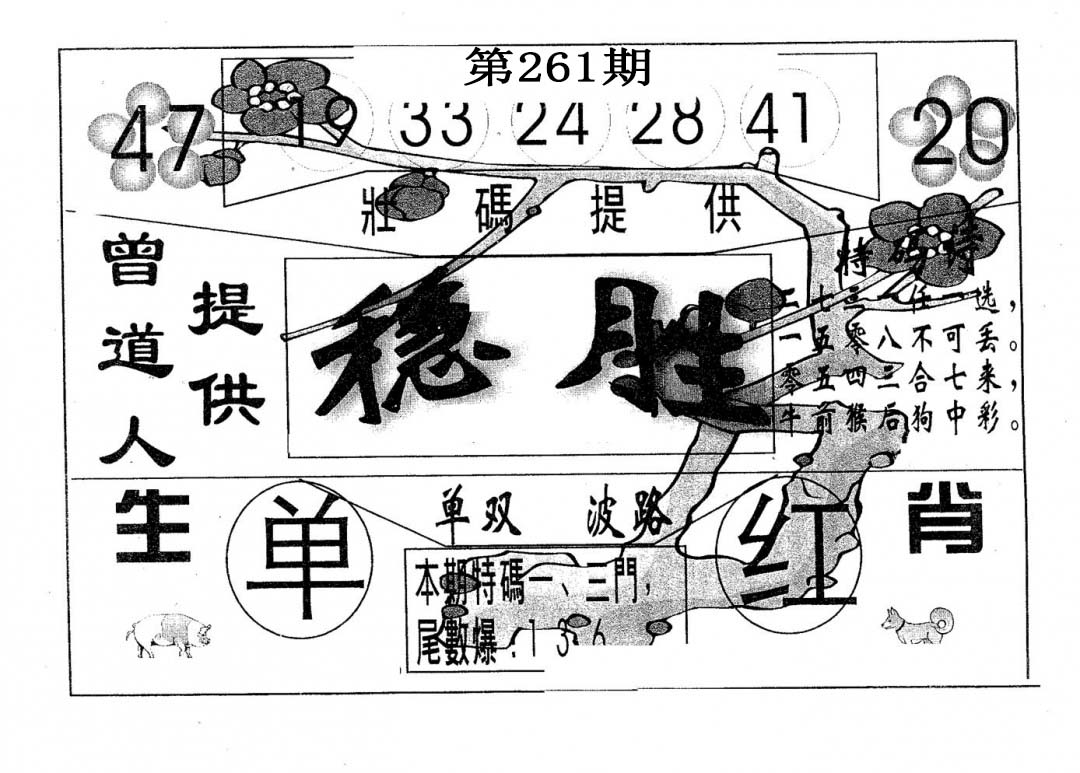 第261期
47 19 33 24 28 41 20
壯碼提供
曾道人
提供
稳胜
特码诗
二七三一任一选，
一五零八不可丢。
零五四三合七来，
牛前猴后狗中彩。
生肖
单双 波路
单
红
本期特碼一、三門，
尾數爆:136